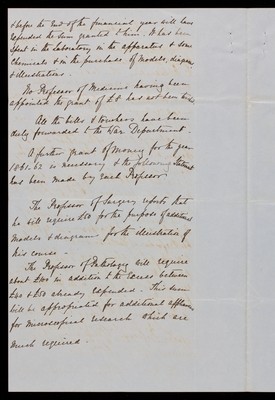 & before the End of the financial year will have
expended the sum granted to him. It has been
spent in the laboratory, in the apparatus & some
Chemicals & in the purchase of Models, diagrams
& illustrations.
No Professor of Medicine having been
appointed the grant of £ has not been
All the bills & vouchers have been
duly forwarded to the War Department.
A further grant of Money for the year
1861.62 is necessary & the following Statement
has been made by each Professor
The Professor of Surgery reports that
he will require £50 for the purpose of additional
Models & diagrams for the illustration of
his course -
The Professor of Pathology will require
about £100 in addition to the Excess between
£40 & £50 already expended - This sum
will be appropriated for additional
for microscopical research which are
much required.